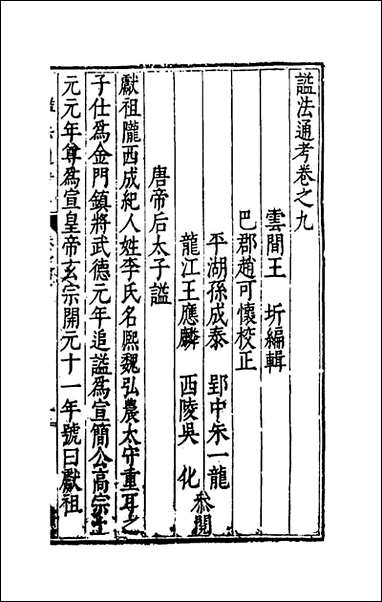 諡法通考卷之九
雲間王 圻編輯
巴郡趙可懷校正
平湖孫成泰 郢中朱一龍
龍江王應麟 西陵吳 化
叅閱
唐帝后太子諡
獻祖隴西成紀人姓李氏名熈魏弘農太守重耳之
子仕爲金門鎮將武德元年追諡爲宣簡公高宗上
元元年尊爲宣皇帝玄宗開元十一年號曰獻祖